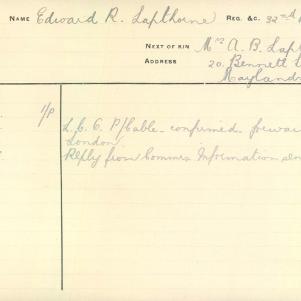 NAME Edward R. Lapthorne REG. &C. 32nd
NEXT OF KIN Mrs A. B. Lapt
ADDRESS 20. Bennett
Mayland
1/P
L. C. C. P/Cable - confirmed forwar
London
Reply from Commrs Information sen